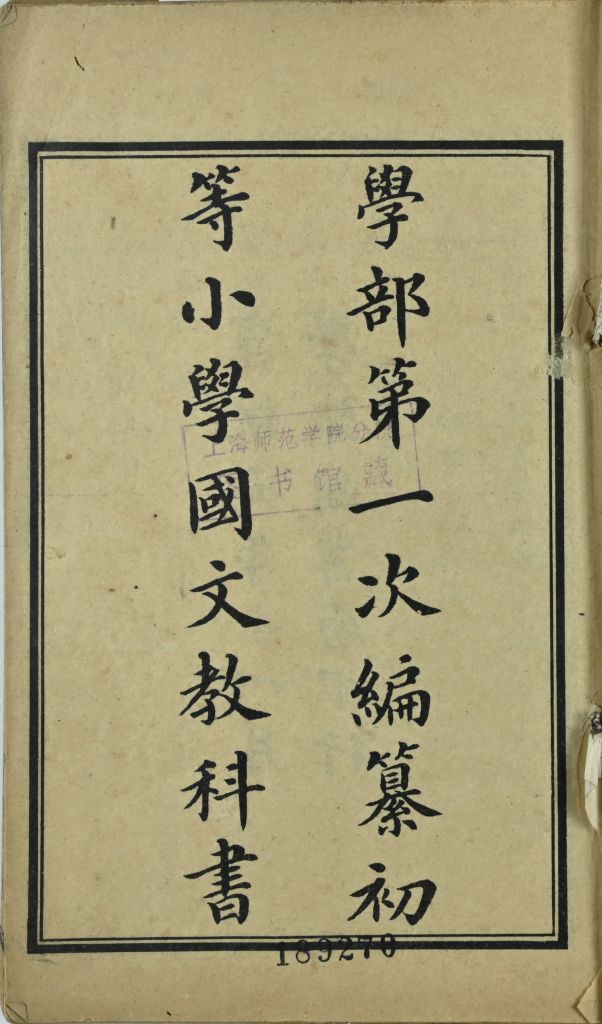 學部第一次編纂初
等小學國文教科書
上海师范学院分院
书馆藏
189270